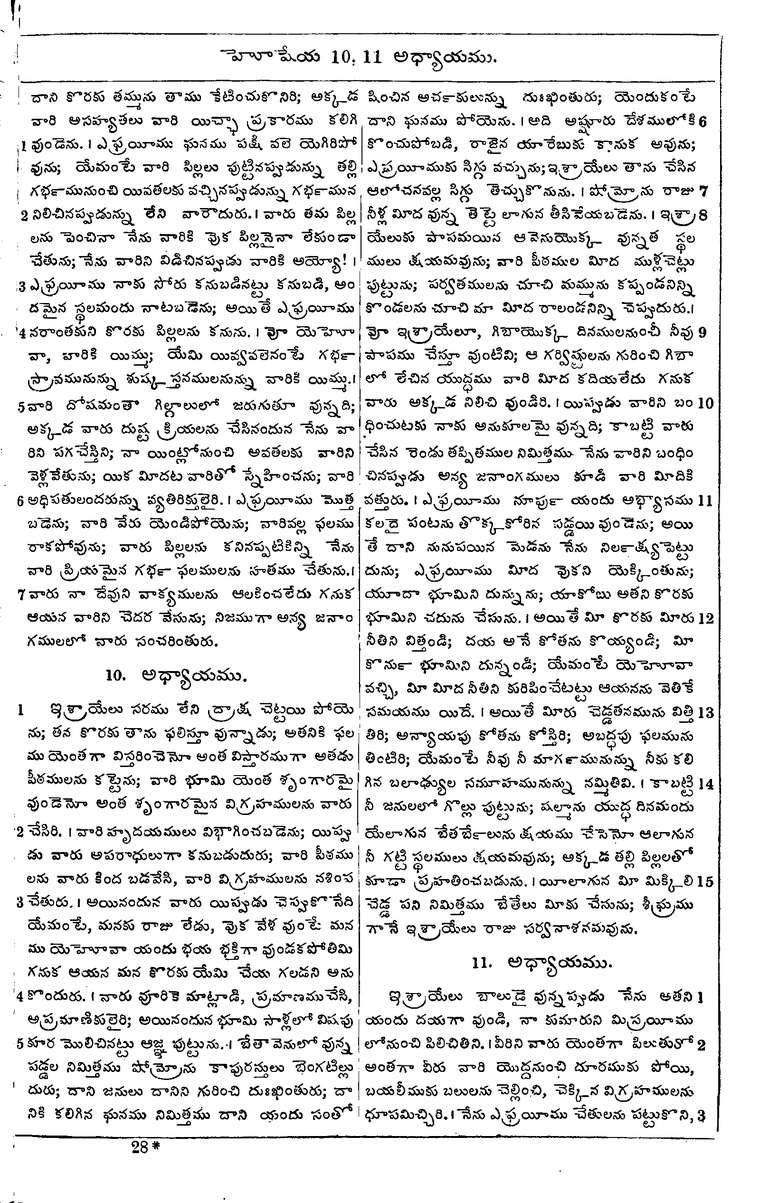 హోషేయ 10, 11 అధ్యాయము.
దాని కొరకు తమ్మును తాము కేటించుకొనిరి; అక్కడ
వారి అసహ్యతలు వారి యిచ్ఛా ప్రకారము కలిగి
1 వుండెను. । ఎఫ్రయీము ఘనము పక్షి వలె యెగిరిపో
వును; యేమంటే వారి పిల్లలు పుట్టినప్పుడున్ను తల్లి
గర్భమునుంచి యివతలకు వచ్చినప్పుడున్ను గర్భమున
2 నిలిచినప్పుడున్ను లేని వారౌదురు. । వారు తమ పిల్ల
లను పెంచినా నేను వారికి వొక పిల్లనైనా లేకుండా
చేతును; నేను వారిని విడిచినప్పుడు వారికి అయ్యో! ।
3 ఎఫ్రయీము నాకు సోరు కనుబడినట్టు కనుబడి, అం
దమైన స్థలమందు నాటబడెను; అయితే ఎఫ్రయీము
4 నరాంతకుని కొరకు పిల్లలను కనును. । వో యెహో
వా, వారికి యిమ్ము; యేమి యివ్వవలెనంటే గర్భ
స్రావమునున్ను శుష్క స్తనములనున్ను వారికి యిమ్ము. ।
5 వారి దోషమంతా గిల్గాలులో జరుగుతూ వున్నది;
అక్కడ వారు దుష్ట క్రియలను చేసినందున నేను వా
రిని పగచేస్తిని; నా యింట్లోనుంచి అవతలకు వారిని
వెళ్లవేతును; యిక మీదట వారితో స్నేహించను; వారి
6 అధిపతులందరున్ను వ్యతిరిక్తులైరి. । ఎఫ్రయీము మొత్త
బడెను; వారి వేరు యెండిపోయెను; వారివల్ల ఫలము
రాకపోవును; వారు పిల్లలను కనినప్పటికిన్ని నేను
వారి ప్రియమైన గర్భ ఫలములను హతము చేతును. ।
7 వారు నా దేవుని వాక్యములను ఆలకించలేదు గనుక
ఆయన వారిని చెదర వేసును; నిజముగా అన్య జనాం
గములలో వారు సంచరింతురు.
10. అధ్యాయము.
1 ఇశ్రాయేలు సరము లేని ద్రాక్ష చెట్టయి పోయె
ను; తన కొరకు తాను ఫలిస్తూ వున్నాడు; అతనికి ఫల
ము యెంతగా విస్తరించెనో అంత విస్తారముగా అతడు
పీఠములను కట్టెను; వారి భూమి యెంత శృంగారమై
వుండెనో అంత శృంగారమైన విగ్రహములను వారు
2 చేసిరి. । వారి హృదయములు విభాగించబడెను; యిప్పు
డు వారు అపరాధులుగా కనుబడుదురు; వారి పీఠము
లను వారు కింద బడవేసి, వారి విగ్రహములను నశింప
3 చేతురు. । అయినందున వారు యిప్పుడు చెప్పుకొనేది
యేమంటే, మనకు రాజు లేడు, వొక వేళ వుంటే మన
ము యెహోవా యందు భయ భక్తిగా వుండకపోతిమి
గనుక ఆయన మన కొరకు యేమి చేయ గలడని అను
4 కొందురు. । వారు వూరికె మాట్లాడి, ప్రమాణము చేసి,
అప్రమాణికులైరి; అయినందున భూమి సాళ్లలో విషపు
5 కూర మొలిచినట్టు ఆజ్ఞ పుట్టును. । బేతావెనులో వున్న
పడ్డల నిమిత్తము షోమ్రోను కాపురస్తులు బెంగటిల్లు
దురు; దాని జనులు దానిని గురించి దుఃఖింతురు; దా
నికి కలిగిన ఘనము నిమిత్తము దాని యందు సంతో
షించిన అర్చకులున్ను దుఃఖింతురు; యెందుకంటే
దాని ఘనము పోయెను. । అది అష్షూరు దేశములోకి 6
కొంచుపోబడి, రాజైన యారేబుకు కానుక అవును;
ఎఫ్రయీముకు సిగ్గు వచ్చును; ఇశ్రాయేలు తాను చేసిన
ఆలోచనవల్ల సిగ్గు తెచ్చుకొనును. । షోమ్రోను రాజు 7
నీళ్ల మీద వున్న తెట్టె లాగున తీసివేయబడెను. । ఇశ్రా 8
యేలుకు పాపమయిన ఆవెనుయొక్క వున్నత స్థల
ములు క్షయమవును; వారి పీఠముల మీద ముళ్లచెట్లు
పుట్టును; పర్వతములను చూచి మమ్మును కప్పుండనిన్ని
కొండలను చూచి మా మీద రాలండనిన్ని చెప్పుదురు. ।
వో ఇశ్రాయేలూ, గిబాయొక్క దినములనుంచీ నీవు 9
పాపము చేస్తూ వుంటివి; ఆ గర్విష్టులను గురించి గిబా
లో లేచిన యుద్ధము వారి మీద కదియలేదు గనుక
వారు అక్కడ నిలిచి వుండిరి. । యిప్పుడు వారిని బం 10
ధించుటకు నాకు అనుకూలమై వున్నది; కాబట్టి వారు
చేసిన రెండు తప్పితముల నిమిత్తము నేను వారిని బంధిం
చినప్పుడు అన్య జనాంగములు కూడి వారి మీదికి
వత్తురు. । ఎఫ్రయీము నూపు యందు అభ్యాసము 11
కలదై పంటను తొక్క కోరిన పడ్డయి వుండెను; అయి
తే దాని నునుపయిన మెడను నేను నిలకత్య్వపెట్టు
దును; ఎఫ్రయీము మీద వొకని యెక్కింతును;
యూదా భూమిని దున్నును; యాకోబు అతని కొరకు
భూమిని చదును చేసును. । అయితే మీ కొరకు మీరు 12
నీతిని విత్తండి; దయ అనే కోతను కొయ్యండి; మీ
కొనుక భూమిని దున్నండి; యేమంటే యెహోవా
వచ్చి, మీ మీద నీతిని కురిపించేటట్టు ఆయనను వెతికే
సమయము యిదే. । అయితే మీరు చెడ్డతనమును విత్తి 13
తిరి; అన్యాయపు కోతను కోస్తిరి; అబద్ధపు ఫలమును
తింటిరి; యేమంటే నీవు నీ మార్గమునున్ను నీకు కలి
గిన బలాఢ్యుల సమూహమునున్ను నమ్మితివి. । కాబట్టి 14
నీ జనులలో గొల్లు పుట్టును; షల్మాను యుద్ధ దినమందు
యేలాగున బేతర్బేలును క్షయము చేసెనో ఆలాగున
నీ గట్టి స్థలములు క్షయమవును; అక్కడ తల్లి పిల్లలతో
కూడా ప్రహతించబడును. । యీలాగున మీ మిక్కిలి 15
చెడ్డ పని నిమిత్తము బేతేలు మీకు చేసును; శీఘ్రము
గానే ఇశ్రాయేలు రాజు సర్వనాశనమవును.
11. అధ్యాయము.
ఇశ్రాయేలు బాలుడై వున్నప్పుడు నేను అతని 1
యందు దయగా వుండి, నా కుమారుని మిస్రయీము
లోనుంచి పిలిచితిని. । వీరిని వారు యెంతగా పిలుతురో 2
అంతగా వీరు వారి యొద్దనుంచి దూరముకు పోయి,
బయలీముకు బలులను చెల్లించి, చెక్కిన విగ్రహములను
ధూపమిచ్చిరి. । నేను ఎఫ్రయీము చేతులను పట్టుకొని, 3
28*